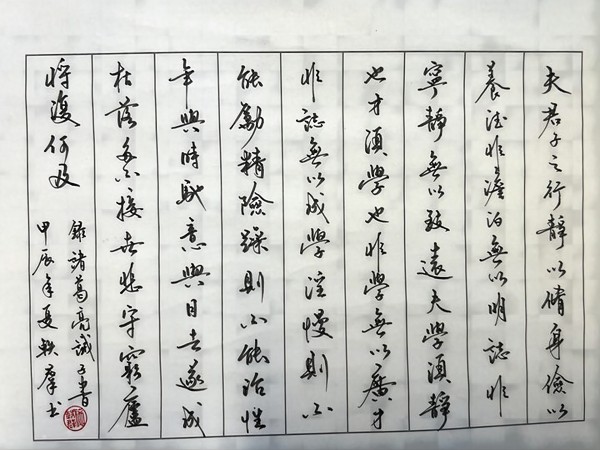 夫君子之行靜以脩身儉以
養德非澹泊無以明誌非
寧靜無以致遠夫學須靜
也才須學也非學無以廣才
非誌無以成學淫慢則不
能勵精險躁則不能治性
年與時馳意與日去遂成
枯落多不接世悲守窮廬
將復何及
錄諸葛亮誡子書
甲辰年夏軼羣書